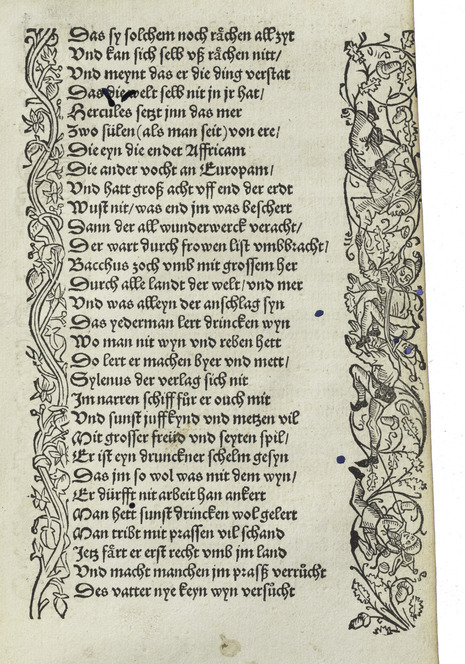 Das sy solchem noch raͤchen all zyt
Vnd kan sich selb vß raͤchen nitt/
Vnd meynt das er die ding verstat
Das die welt selb nit jn jr hat/
Hercules setzt jnn das mer
Zwo sülen (als man seit) von ere/
Die eyn die endet Affricam
Die ander vocht an Europam/
Vnd hatt groß acht vff end der erdt
Wust nit/was end jm was beschert
Dann der all wunderwerck veracht/
Der wart durch frowen list vmbbracht/
Bacchus zoch vmb mit grossem her
Durch alle landt der welt/vnd mer
Vnd was alleyn der anschlag syn
Das yederman lert drincken wyn
Wo man nit wyn vnd reben hett
Do lert er machen byer vnd mett/
Sylenus der verlag sich nit
Jm narren schiff für er ouch mit
Vnd sunst juffkynd vnd metzen vil
Mit grosser freüd vnd seyten spil/
Er ist eyn drunckner schelm gesyn
Das jm so wol was mit dem wyn/
Er dürfft nit arbeit han ankert
Man hett sunst drincken wol gelert
Man tribt mit prassen vil schand
Jetz faͤrt er erst recht vmb jm land
Vnd macht manchen jm praß verruͤcht
Des vatter nye keyn wyn versuͤcht